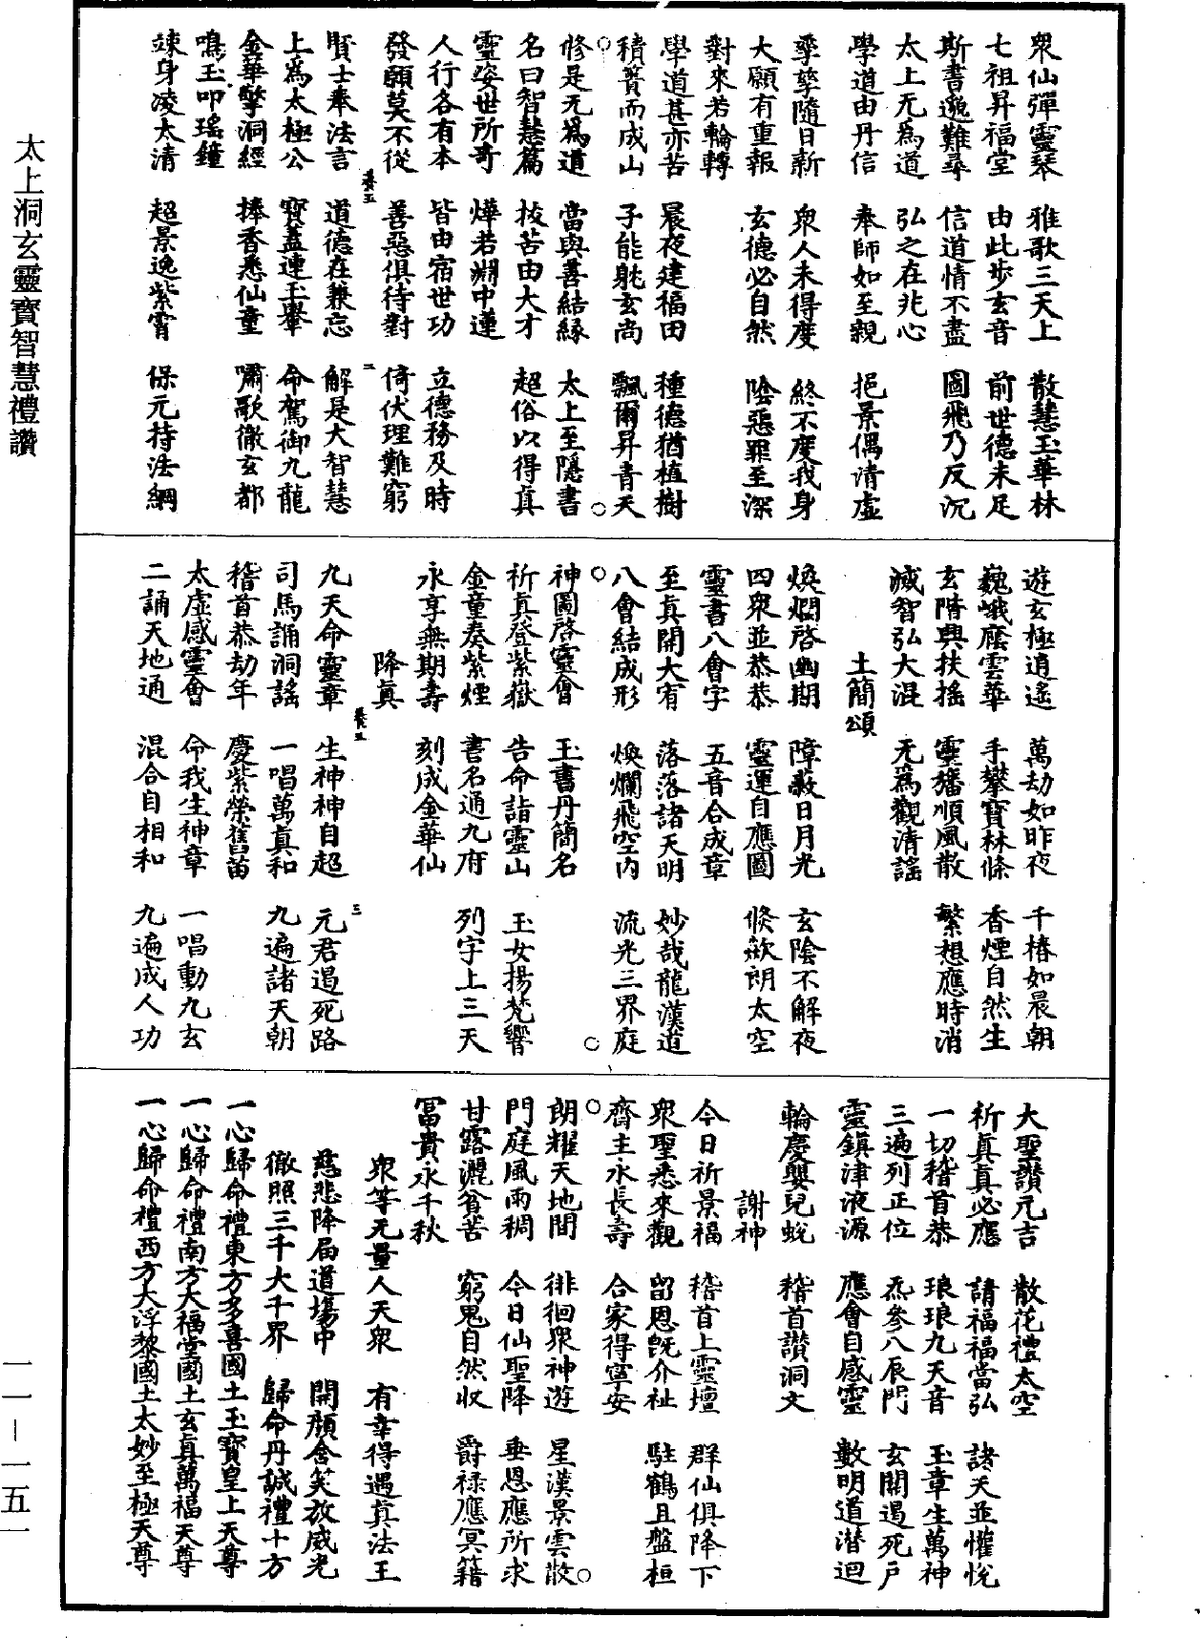 太上洞玄靈寶智慧禮讚
衆仙彈靈琴　雅歌三天上　散慧玉華林
七祖昇福堂　由此步玄音　前世德未足
斯書邈難尋　信道情不盡　圖飛乃反沉
太上无為道　弘之在兆心
學道由丹信　奉師如至親　挹景偶清虛
孳孳隨日新　衆人未得度　終不度我身
大願有重報　玄德必自然　陰惡罪至深
對來若輪轉
學道甚亦苦　晨夜建福田　種德猶植樹
積簣而成山　子能躭玄尚　飄爾昇青天
修是无為道　當與善結緣　太上至隱書
名曰智慧篇　拔苦由大才　超俗以得真
靈姿世所奇　燁若淵中蓮
人行各有本　皆由宿世功　立德務及時
發願莫不從　善惡俱待對　倚伏理難窮
養五　二
賢士奉法言　道德在兼忘　解是大智慧
上為太極公　寶蓋連玉轝　命駕御九龍
金華擎洞經　捧香悉仙童　嘯歌徹玄都
鳴玉叩瑤鐘
竦身凌太清　超景逸紫霄　保元持法綱
遊玄極逍遙　萬劫如昨夜　千椿如晨朝
巍峨蔭雲華　手攀寶林條　香煙自然生
玄階興扶搖　靈旛順風散　繁想應時消
滅智弘大混　无為觀清謠
土簡頌
煥爛啓幽期　障蔽日月光　玄陰不解夜
四衆並恭恭　靈運自應圖　倏欻朗太空
靈書八會字　五音合成章
至真開大有　落落諸天明　妙哉龍漢道
八會結成形　煥爛飛空內　流光三界庭
神圖啓靈會　玉書丹簡名
祈真登紫嶽　告命詣靈山　玉女揚梵響
金童奏紫煙　書名通九府　列字上三天
永享無期壽　刻成金華仙
降真
養五　三
九天命靈章　生神神自超　元君遏死路
司馬誦洞謠　一唱萬真和　九遍諸天朝
稽首恭劫年　慶紫榮舊苗
太虛感靈會　命我生神章　一唱動九玄
二誦天地通　混合自相和　九遍成人功
大聖讚元吉　散花禮太空
祈真真必應　請福福當弘　諸天並懽悅
一切稽首恭　琅琅九天音　玉章生萬神
三遍列正位　炁參八辰門　玄關遏死戶
靈鎮津液源　應會自感靈　數明道潛迴
輪慶嬰兒蛻　稽首讚洞文
謝神
今日祈景福　稽首上靈壇　群仙俱降下
衆聖悉來觀　留恩旣介祉　駐鶴且盤桓
齊主永長壽　合家得寧安
朗耀天地間　徘徊衆神遊　星漢景雲散
門庭風雨稠　今日仙聖降　垂恩應所求
甘露灑貧苦　窮鬼自然收　爵祿應冥籍
冨貴永千秋
衆等无量人天衆　有幸得遇真法王
慈悲降局道場中　開顏含笑放威光
徹照三千大千界　歸命丹誠禮十方
一心歸命禮東方多喜國土玉寶皇上天尊
一心歸命禮南方大福堂國土玄真萬福天尊
一心歸命禮西方大浮黎國土太妙至極天尊
一一－一五一